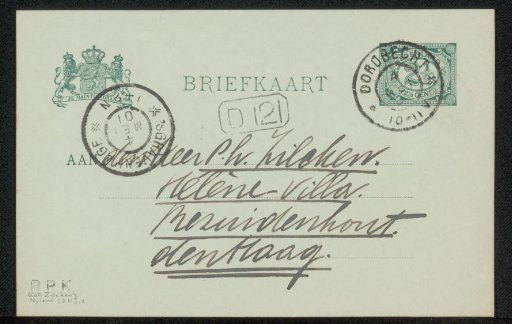 BRIEFKAART
DORDRECHT
10-11 V
D 121
AAN den Heer Ph. Zilcken.
Helène-Villa.
Bezuidenhout.
den Haag.
R P K